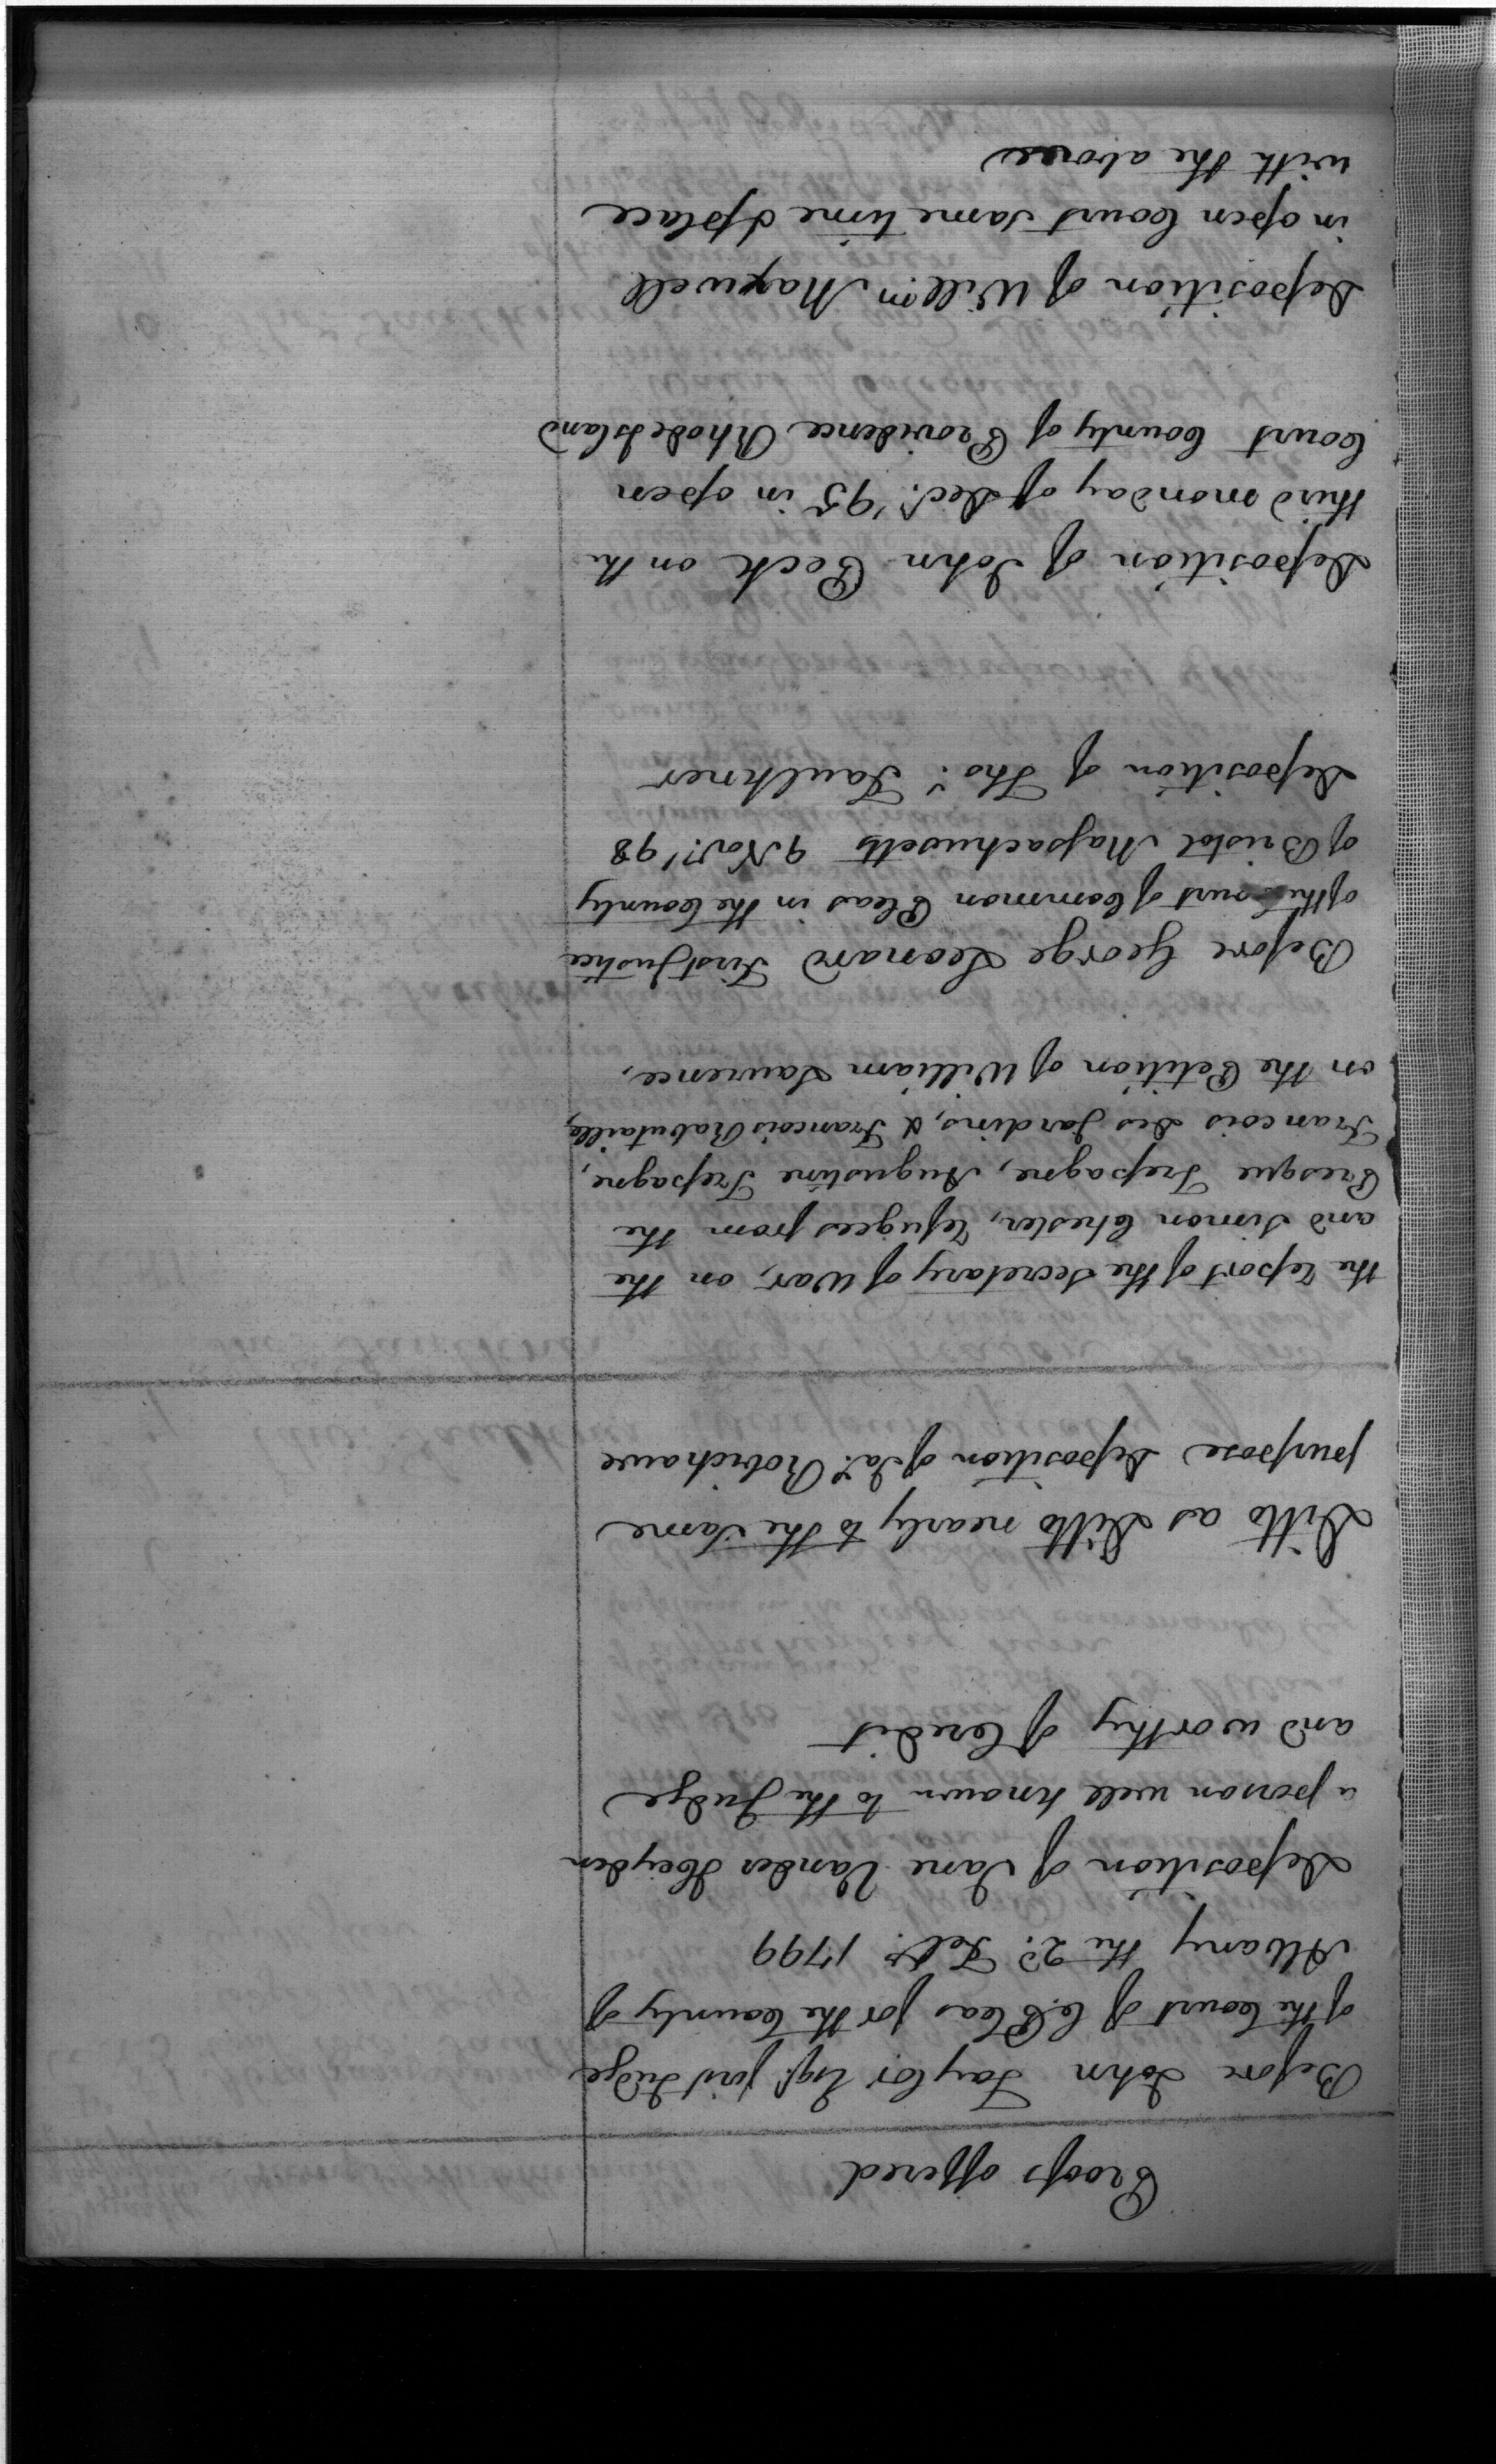 Proofs offered
Before John Taylor Esqr. first Judge
of the Court of C. Pleas for the County of
Albany the 2d. Feby 1799
Deposition of Jane Vander Heyden
a person well known to the Judge
and worthy of Credit
Ditto as Ditto nearly to the same
purpose Deposition of Jas. Robichaux
the report of the Secretary of War, on the
and Simon Chester, refugees from the
Presque Trepagne, Augustine Trepagne,
Francois Des Jardins, & Francois Rabutaille,
on the Petition of William Lawrence,
Before George Leonard First Justice
of the Court of Common Pleas in the County
of Bristol Massachusetts 9 Novr. '98
Deposition of Thos. Faulkner
Deposition of John Peck on the
third monday of Decr. '95 in open
Court County of Providence Rhode Island
Deposition of Willm. Maxwell
in open Court same time & place
with the above